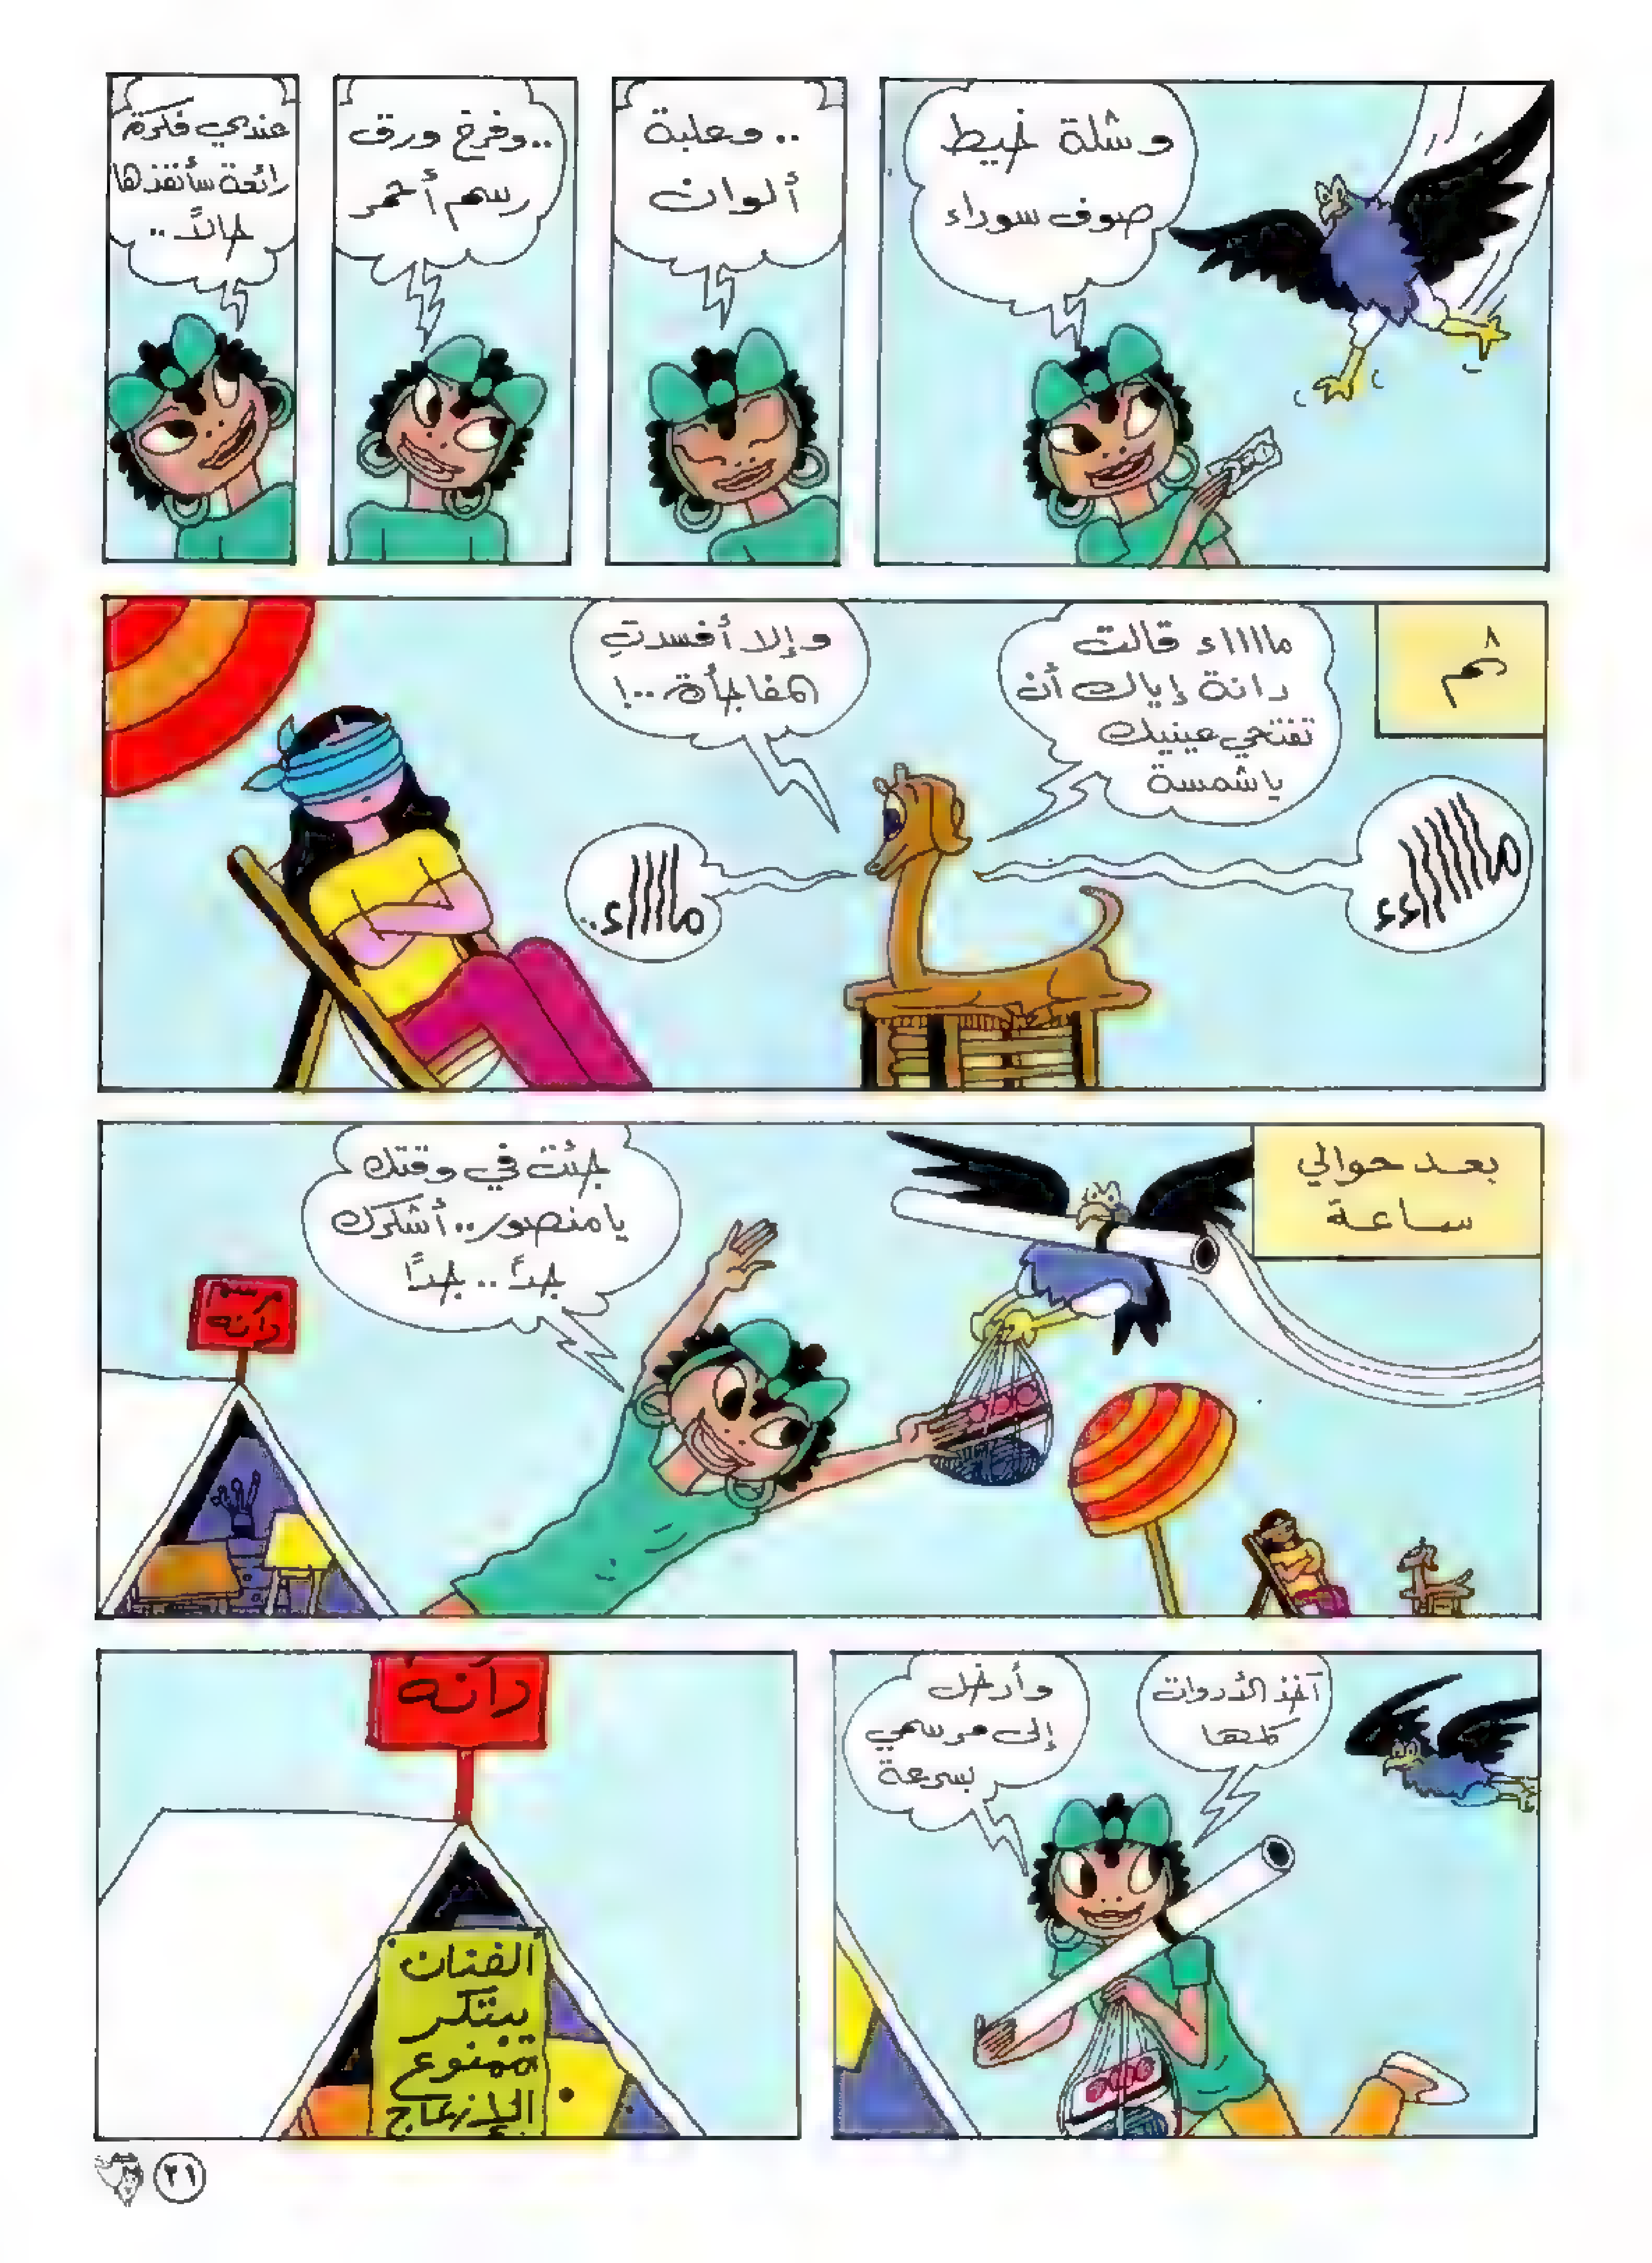 وشلة خيط
صوف سوداء
.. وعلبة
ألوان
..وفرخ ورق
رسم أحمر
عندي فكرة
رائعة سأنفذها
حالاً..
ثم
مااااء قالت
دانة إياك أن
تفتحي عينيك
ياشمسة
وإلا أفسدتِ
المفاجأة..!
مااااااءء
مااااء..
بعد حوالي
ساعة
جئت في وقتك
يا منصور.. أشكرك
جداً.. جداً
مرسم
دانه
آخذ الأدوات
كلها
وأدخل
إلى مرسمي
بسرعة
دانه
الفنان
يبتكر
ممنوع
الإزعاج
٢١